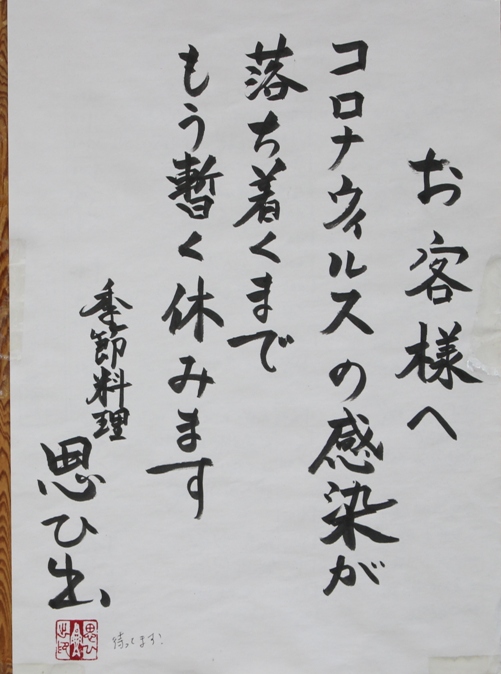 お客様へ
コロナウィルスの感染が
落ち着くまで
もう暫く休みます
季節料理
思ひ出
待ってます!